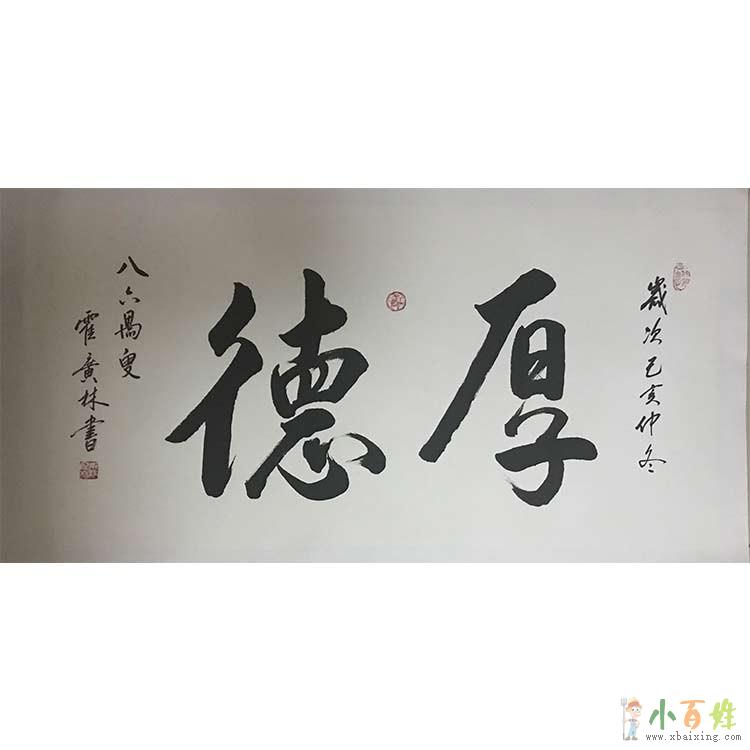 歲次己亥仲冬
厚德
八六愚叟
霍廣林書
小百姓
www.xbaixing.com